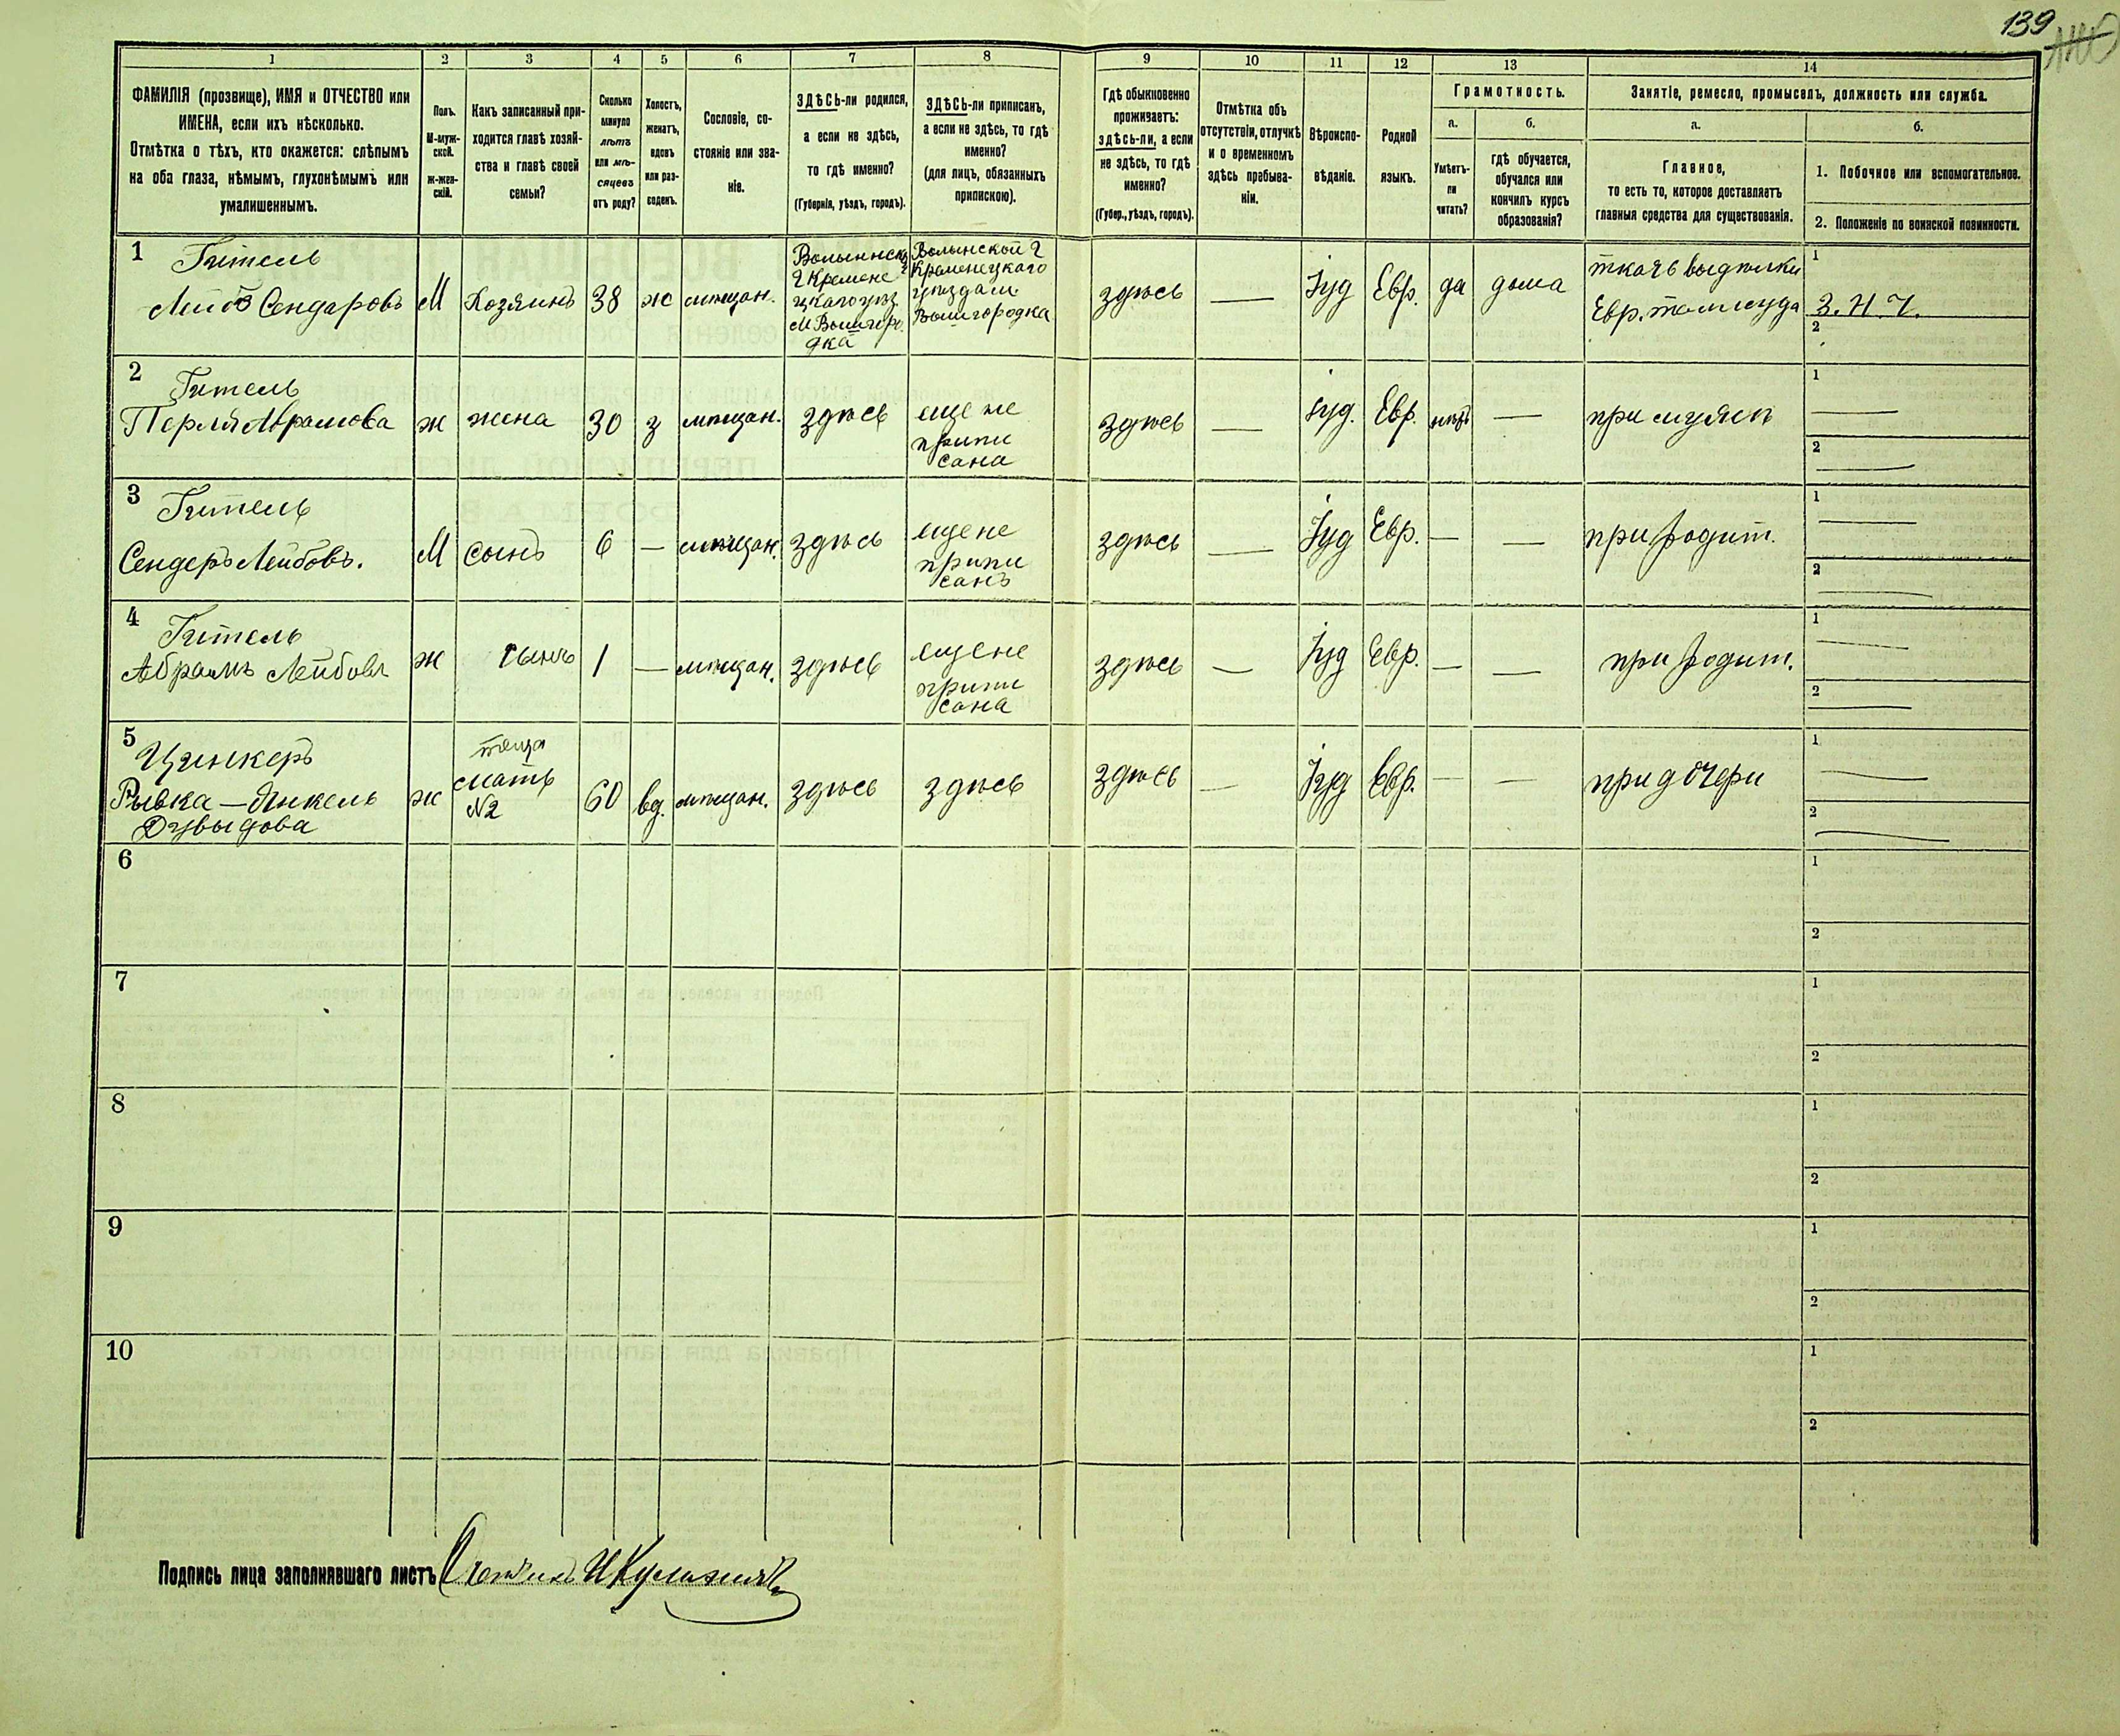 139
1 2 3 4 5 6 7 8 9 10 11 12 13 14
ФАМИЛІЯ (прозвище), ИМЯ и ОТЧЕСТВО или
ИМЕНА, если ихъ нѣсколько.
Отмѣтка о тѣхъ, кто окажется: слѣпымъ
на оба глаза, нѣмымъ, глухонѣмымъ или
умалишеннымъ.
Полъ.
М-муж-
ской.
Ж-жен-
скій.
Какъ записанный при-
ходится главѣ хозяй-
ства и главѣ своей
семьи?
Сколько
минуло
лѣтъ
или мѣ-
сяцевъ
отъ роду?
Холостъ,
женатъ,
вдовъ
или раз-
веденъ.
Сословіе, со-
стояніе или зва-
ніе.
ЗДѢСЬ-ли родился,
а если не здѣсь,
то гдѣ именно?
(Губернія, уѣздъ, городъ).
ЗДѢСЬ-ли приписанъ,
а если не здѣсь, то гдѣ
именно?
(для лицъ, обязанныхъ
припискою).
Гдѣ обыкновенно
проживаетъ:
здѣсь-ли, а если
не здѣсь, то гдѣ
именно?
(Губер., уѣздъ, городъ).
Отмѣтка объ
отсутствіи, отлучкѣ
и о временномъ
здѣсь пребыва-
ніи.
Вѣроиспо-
вѣданіе.
Родной
языкъ.
Грамотность.
а.
Умѣетъ-
ли
читать?
б.
гдѣ обучается,
обучался или
кончилъ курсъ
образованія?
Занятіе, ремесло, промыселъ, должность или служба.
а.
Главное,
то есть то, которое доставляетъ
главныя средства для существованія.
б.
1. Побочное или вспомогательное.
2. Положеніе по воинской повинности.
1
Гительъ
Лейбъ Сендаровъ
М
Хозяинъ
38
ж
мѣщан.
Волынск
г Кремене
цкаго уѣз
м Вышгоро
дка
Волынской г
Кременецкаго
уѣзда м.
Вышгородка
здѣсь
—
Іуд
Евр.
да
дома
ткачъ выдѣлки
Евр. талмуда
1
З. Н. Ч.
2
2
Гитель
Перля Абрамова
ж
жена
30
з
мѣщан.
здѣсь
еще не
припи
сана
здѣсь
—
Іуд.
Евр.
нѣтъ
—
при мужѣ
1 —
2 —
3
Гитель
Сендеръ Лейбовъ.
М
сынъ
6
—
мѣщан.
здѣсь
еще не
припи
санъ
здѣсь
—
Іуд
Евр.
—
—
при родит.
1 —
2 —
4
Гитель
Абрамъ Лейбовъ
ж
сынъ
1
—
мѣщан.
здѣсь
еще не
припи
сана
здѣсь
—
Іуд
Евр.
—
—
при родит.
1 —
2 —
5
Цинкеръ
Рывка — Янкель
Дувыдова
ж
теща
мать
№2
60
вд.
мѣщан.
здѣсь
здѣсь
здѣсь
—
Іуд
Евр.
—
—
при дочери
1 —
2 —
6
1
2
7
1
2
8
1
2
9
1
2
10
1
2
Подпись лица заполнявшаго листъ